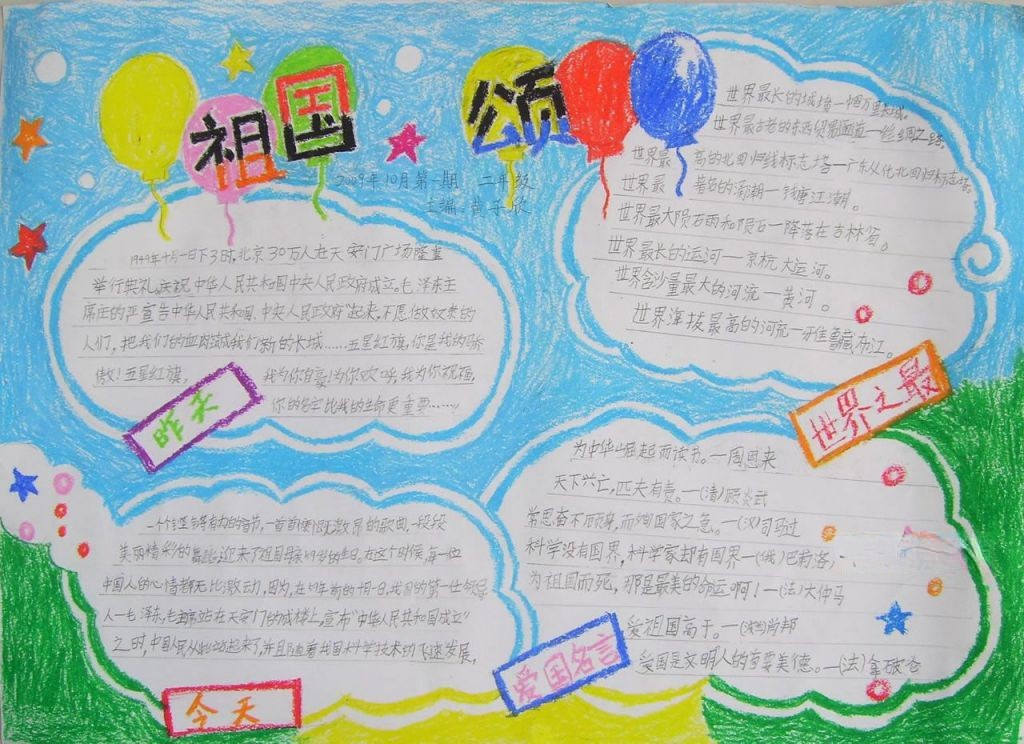 祖国颂
2009年10月第一期 二年级
主编：黄子欣
1949年十月一日下3时，北京30万人在天安门广场隆重
举行典礼，庆祝中华人民共和国中央人民政府成立。毛泽东主
席庄的严宣告中华人民共和国，中央人民政府"起来，不愿做奴隶的
人们，把我们的血肉筑成我们新的长城……五星红旗，你是我的骄
傲！五星红旗，我为你自豪！为你欢呼，我为你祝福，
你的名字比我的生命更重要……
昨天
世界最长的城墙—中国万里长城。
世界最古老的东西贸易通道—丝绸之路
世界最高的北回归线标志塔—广东从化北回归标志塔。
世界最著名的涌潮—钱塘江潮。
世界最大陨石雨和陨石—降落在吉林省。
世界最长的运河—京杭大运河。
世界含沙量最大的河流—黄河。
世界海拔最高的河流—雅鲁藏布江。
世界之最
的音节，一首首慷慨激昂的歌曲，一段段
美丽精彩的舞蹈，迎来了祖国母亲的生日。在这个时候，每一位
中国人的心情都无比激动，因为，在年前的十月一日，我们的第一位领导
人—毛泽东，毛主席站在天安门的城楼上，宣布"中华人民共和国成立"
之时，中国人民从此站起来了，并且随着我国科学技术的飞速发展，
今天
为中华崛起而读书。—周恩来
天下兴亡，匹夫有责。—(清)顾炎武
常思奋不顾身，而殉国家之急。—(汉)司马迁
科学没有国界，科学家却有国界—(俄)巴莆洛
为祖国而死，那是最美的命运啊！—(法)大仲马
爱祖国高于。—(波兰)肖邦
爱国是文明人的首要美德。—(法)拿破仑
爱国名言